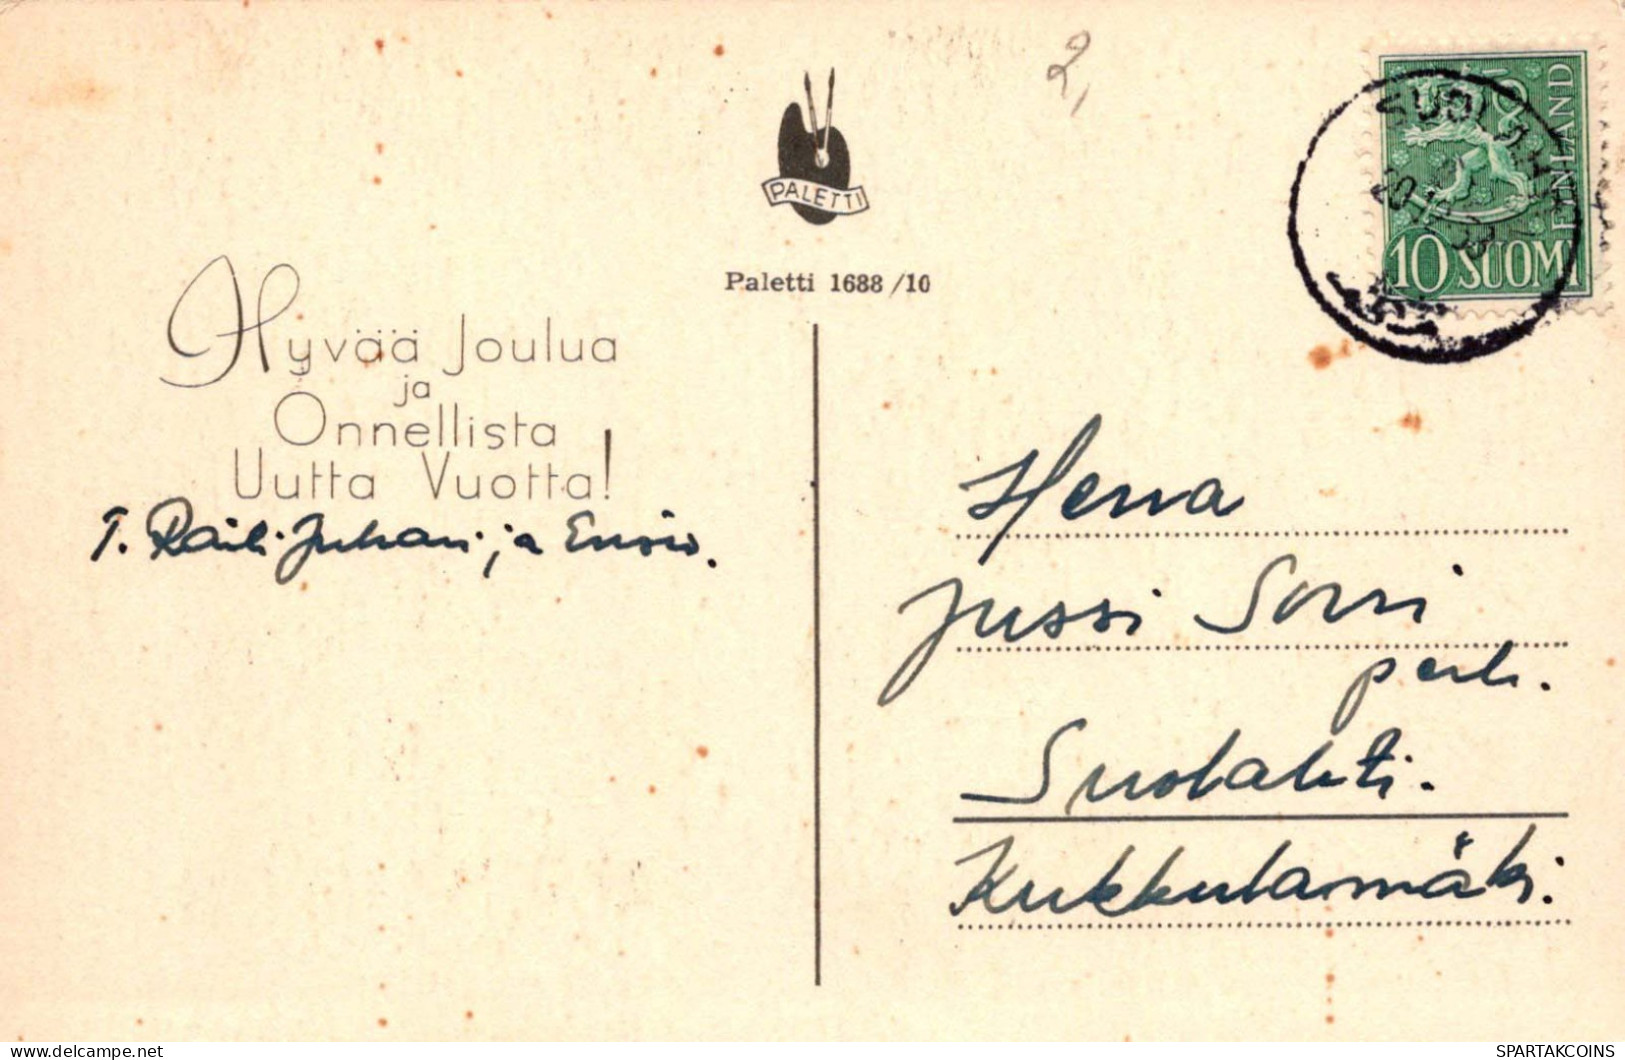 2,
PALETTI
Paletti 1688/10
SUOLAHTI
20.12.58
10 SUOMI
FINLAND
Hyvää Joulua
ja
Onnellista
Uutta Vuotta!
T. Raili Juhani ja Ensio.
Herra
Jussi Sorri
perh.
Suolahti.
Kukkulanmäki.
delcampe.net
SPARTAKCOINS